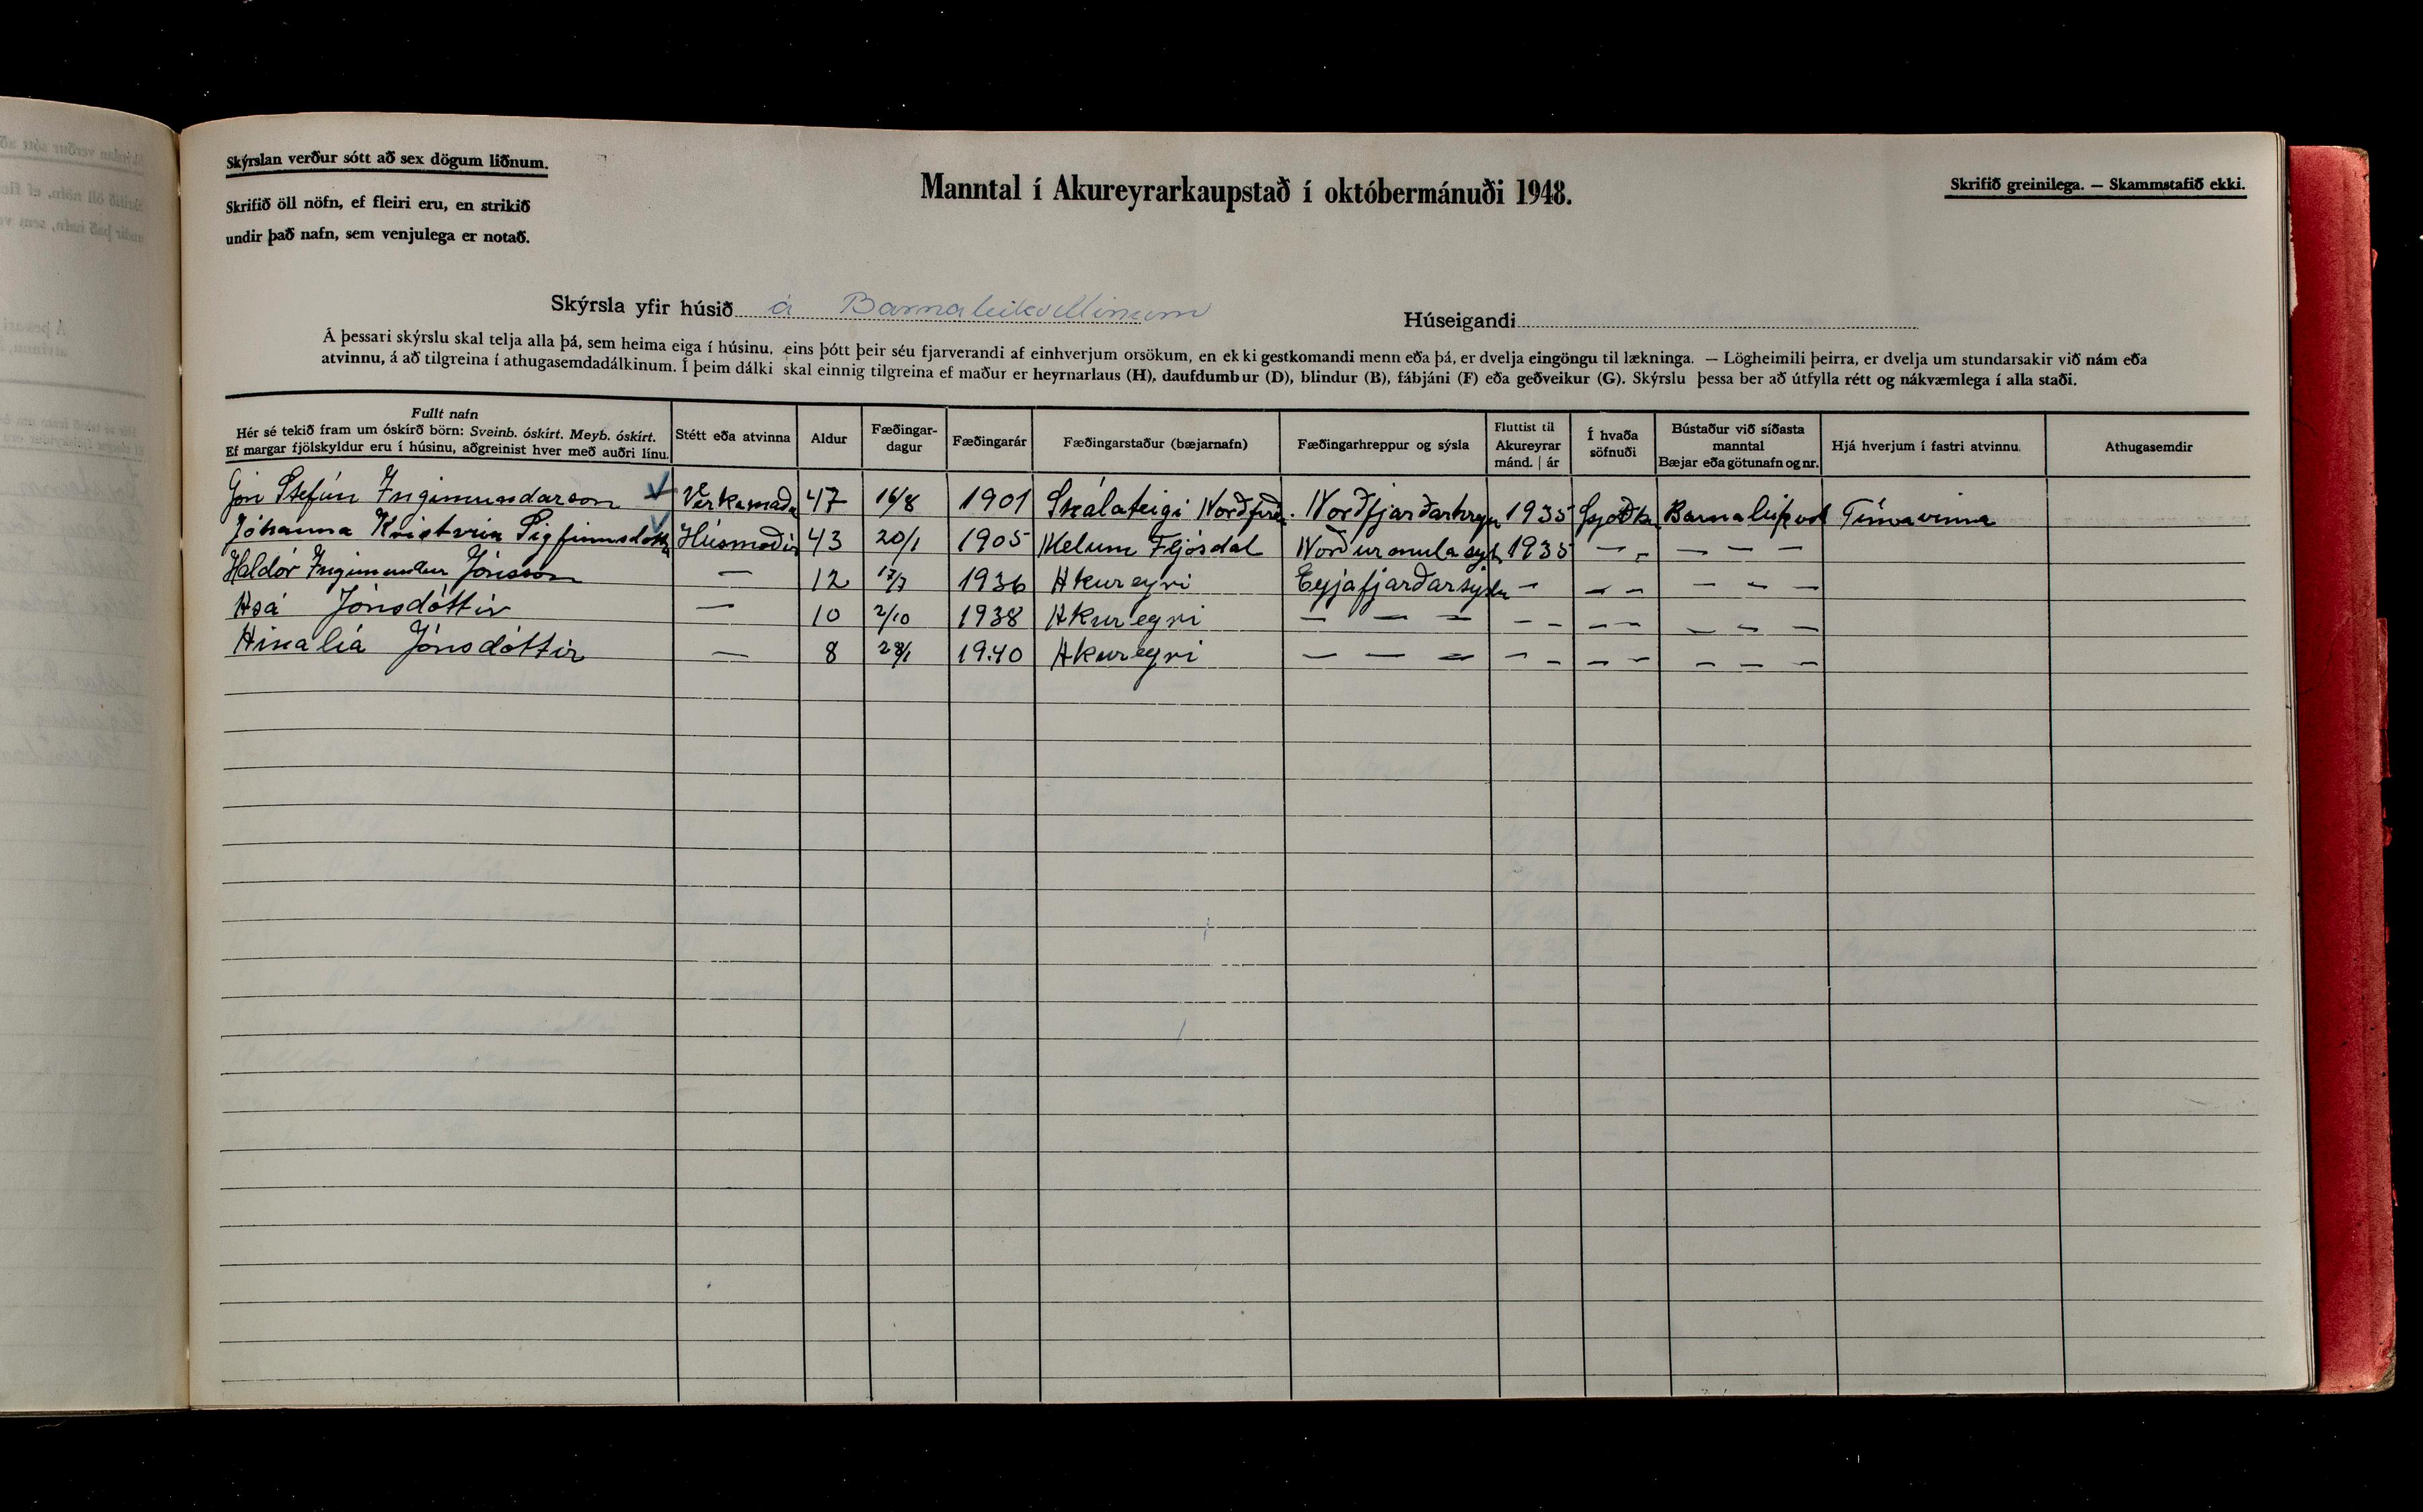 Skýrslan verður sótt að sex dögum liðnum.
Skrifið öll nöfn, ef fleiri eru, en strikið
undir það nafn, sem venjulega er notað.
Manntal í Akureyrarkaupstað í októbermánuði 1948.
Skrifið greinilega. — Skammstafið ekki.
Skýrsla yfir húsið á Barnaleikvellinum
Húseigandi
Á þessari skýrslu skal telja alla þá, sem heima eiga í húsinu, eins þótt þeir séu fjarverandi af einhverjum orsökum, en ekki gestkomandi menn eða þá, er dvelja eingöngu til lækninga. — Lögheimili þeirra, er dvelja um stundarsakir við nám eða
atvinnu, á að tilgreina í athugasemdadálkinum. Í þeim dálki skal einnig tilgreina ef maður er heyrnarlaus (H), daufdumbur (D), blindur (B), fábjáni (F) eða geðveikur (G). Skýrslu þessa ber að útfylla rétt og nákvæmlega í alla staði.
Fullt nafn
Hér sé tekið fram um óskírð börn: Sveinb. óskírt. Meyb. óskírt.
Ef margar fjölskyldur eru í húsinu, aðgreinist hver með auðri línu.
Stétt eða atvinna
Aldur
Fæðingar-
dagur
Fæðingarár
Fæðingarstaður (bæjarnafn)
Fæðingarhreppur og sýsla
Fluttist til
Akureyrar
mánd. | ár
Í hvaða
söfnuði
Bústaður við síðasta
manntal
Bæjar eða götunafn og nr.
Hjá hverjum í fastri atvinnu.
Athugasemdir
Jón Stefán Ingimundarson Verkamaður 47 16/8 1901 Skálateigi Norðfirði. Norðfjarðarhrepp 1935 Barnaleikvöl Tímavinna
Jóhanna Kristrún Sigfinnsdóttir Húsmóðir 43 20/1 1905 Melum Fljósdal Norðurmulasýsl 1935 — — — — —
Haldór Ingimundur Jónsson — 12 17/7 1936 Akureyri Eyjafjarðarsýslu — — — — — —
Asá Jónsdóttir — 10 2/10 1938 Akureyri — — — — — — — — — —
Jónsdóttir — 8 1940 Akureyri — — — — — — — — — —